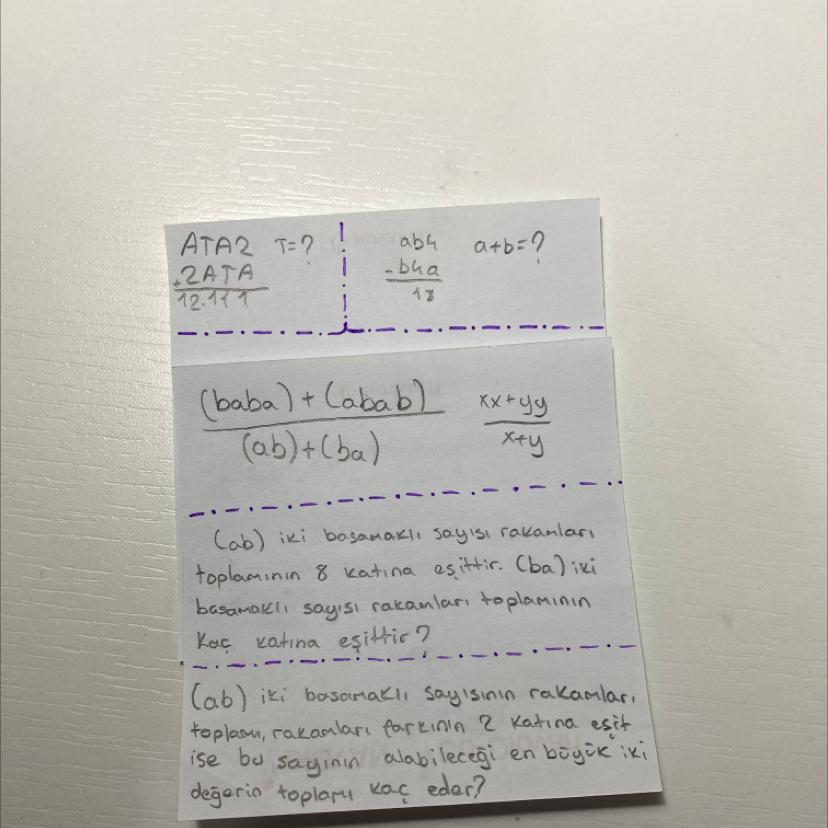 ATA2 T=?
+2ATA
12.111
ab4 a+b=?
-b4a
18
(baba)+(abab)
(ab)+(ba)
xx+yy
x+y
(ab) iki basamaklı sayısı rakamları
toplamının 8 katına eşittir. (ba) iki
basamaklı sayısı rakamları toplamının
kaç katına eşittir?
(ab) iki basamaklı sayısının rakamları
toplamı, rakamları farkının 2 katına eşit
ise bu sayının alabileceği en büyük iki
değerin toplamı kaç eder?